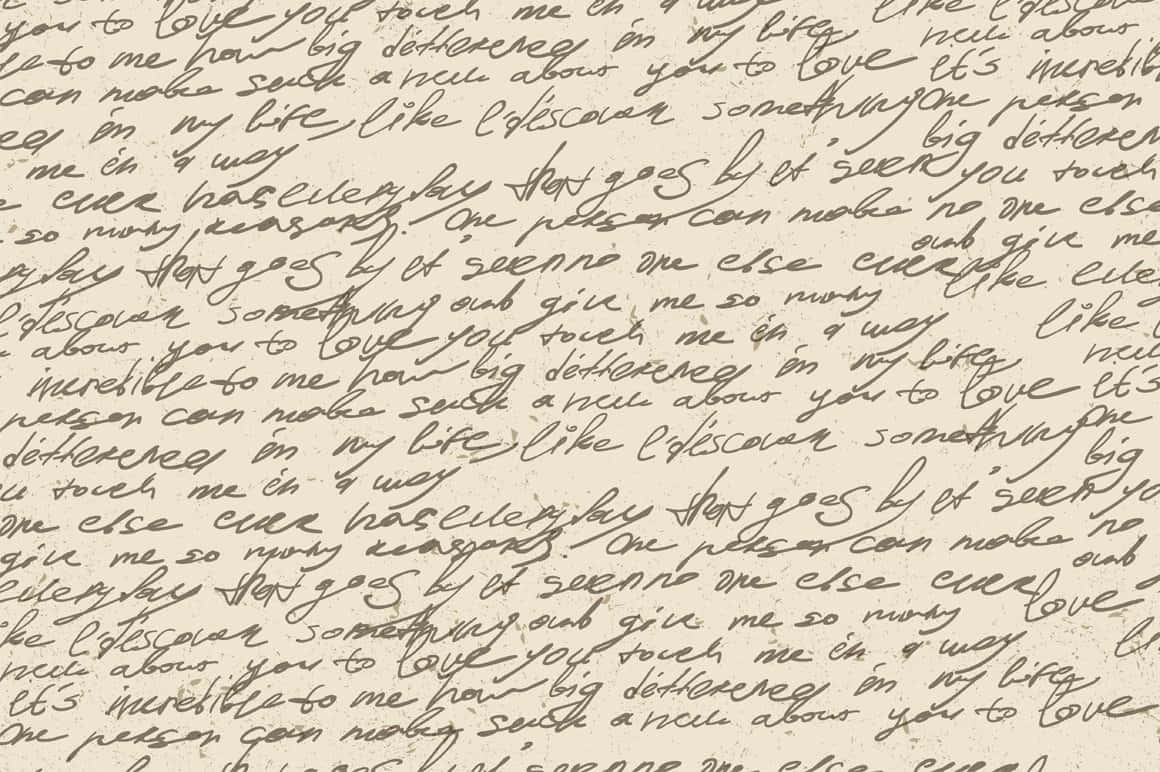 you to love you touch me in a way like I discover
to me how big difference in my life new about
can make such a new about you to love It's incredible
in my life, like I discover something One person
me in a way big difference
ever has every day that goes by it seem you touch
so many reasons. One person can make no one else
and give me
day that goes by it seem no one else ever like every
I discover something and give me so many
about you to love you touch me in a way like
incredible to me how big difference in my life new
person can make such a new about you to love It's
difference in my life, like I discover something One
big
touch me in a way
one else ever has every day that goes by it seem
give me so many reasons. One person can make no
and
every day that goes by it seem no one else ever
love
like I discover something and give me so many
new about you to love you touch me in a way
It's incredible to me how big difference in my life
One person can make such a new about you to love